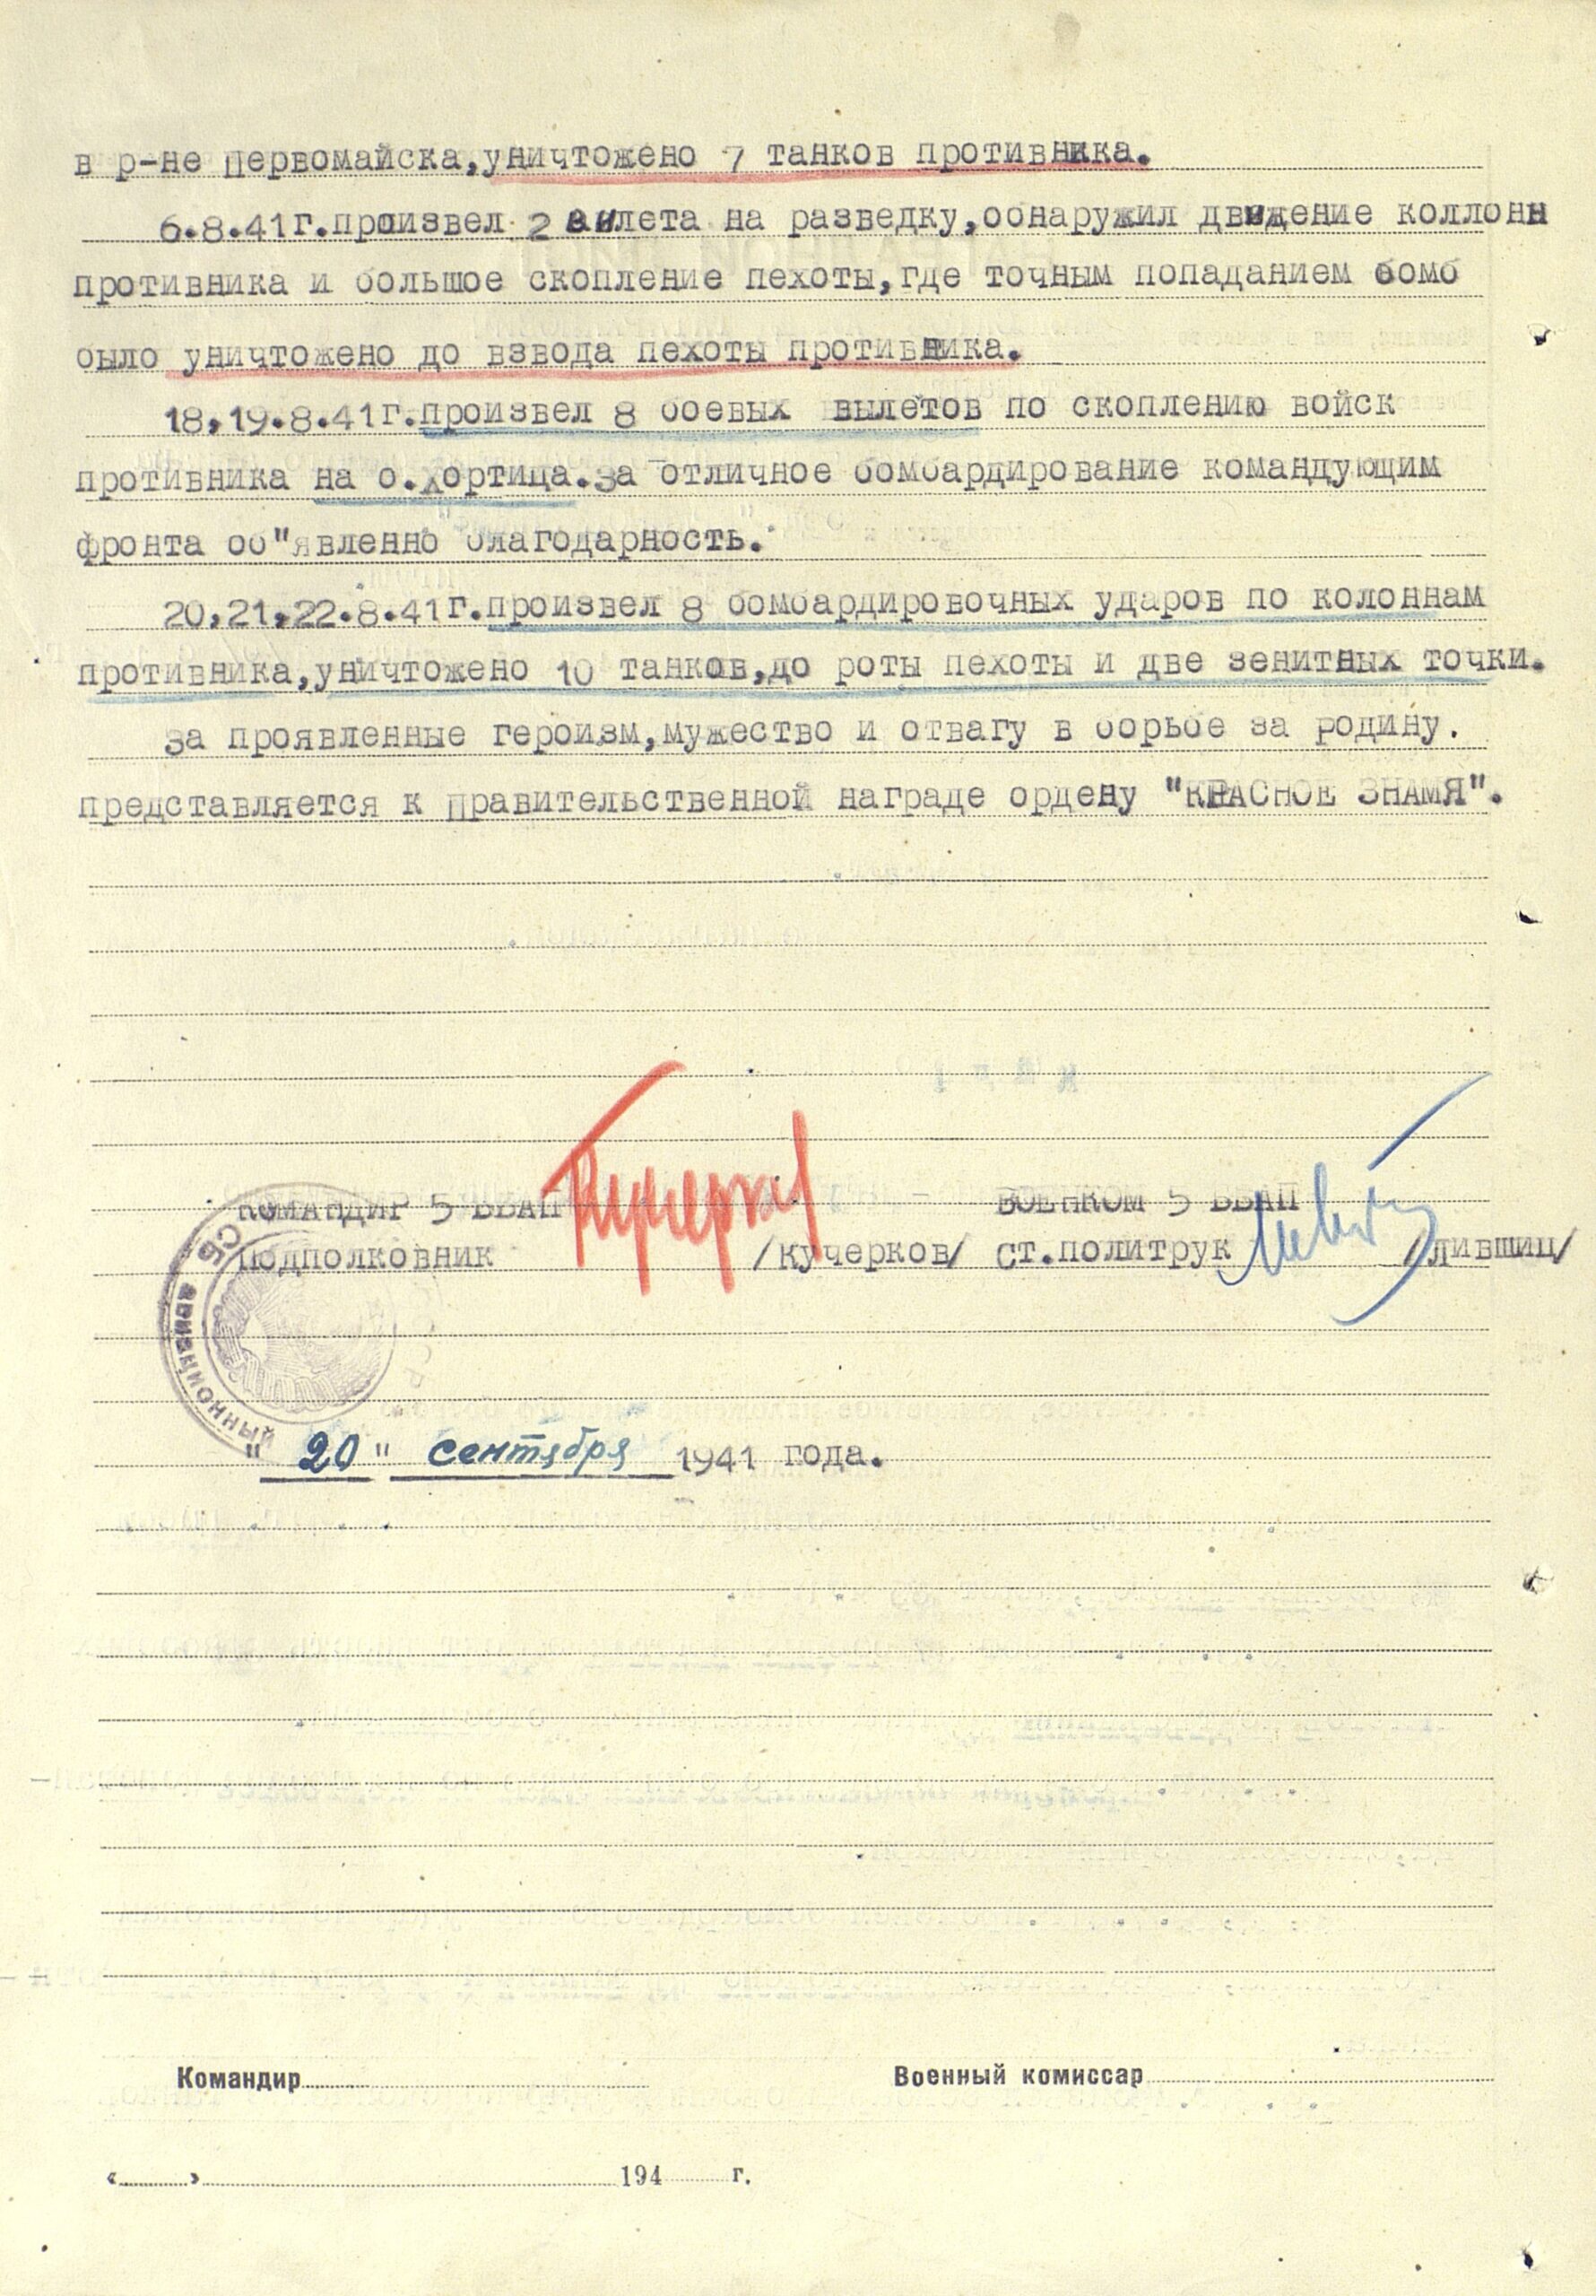 в р-не Первомайска,уничтожено 7 танков противника.
6.8.41г.произвел 2 вылета на разведку,обнаружил движение коллонн
противника и большое скопление пехоты,где точным попаданием бомб
было уничтожено до взвода пехоты противника.
18,19.8.41г.произвел 8 боевых вылетов по скоплению войск
противника на о.Хортица.За отличное бомбардирование командующим
фронта об"явленно благодарность.
20,21,22.8.41г.произвел 8 бомбардировочных ударов по колоннам
противника,уничтожено 10 танков,до роты пехоты и две зенитных точки.
За проявленные героизм,мужество и отвагу в борьбе за родину.
представляется к правительственной награде ордену "КРАСНОЕ ЗНАМЯ".
КОМАНДИР 5 ББАП ВОЕНКОМ 5 ББАП
ПОДПОЛКОВНИК /Кучерков/ СТ.ПОЛИТРУК /Лившиц/
СБ авиационный
" 20 " сентября 1941 года.
Командир Военный комиссар
« » 194 г.